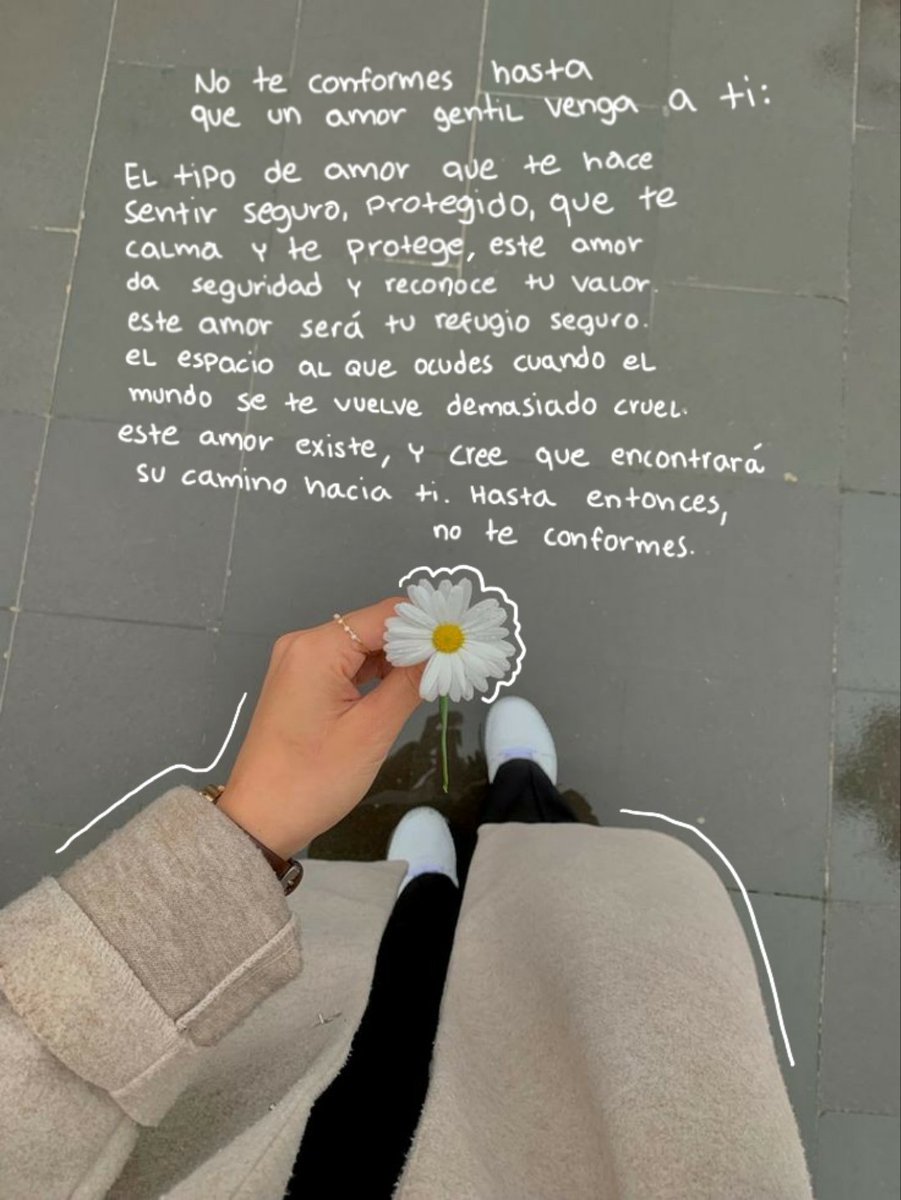 No te conformes hasta
que un amor gentil venga a ti:
El tipo de amor que te hace
sentir seguro, protegido, que te
calma y te protege, este amor
da seguridad y reconoce tu valor.
este amor será tu refugio seguro.
el espacio al que acudes cuando el
mundo se te vuelve demasiado cruel.
este amor existe, y cree que encontrará
su camino hacia ti. Hasta entonces,
no te conformes.